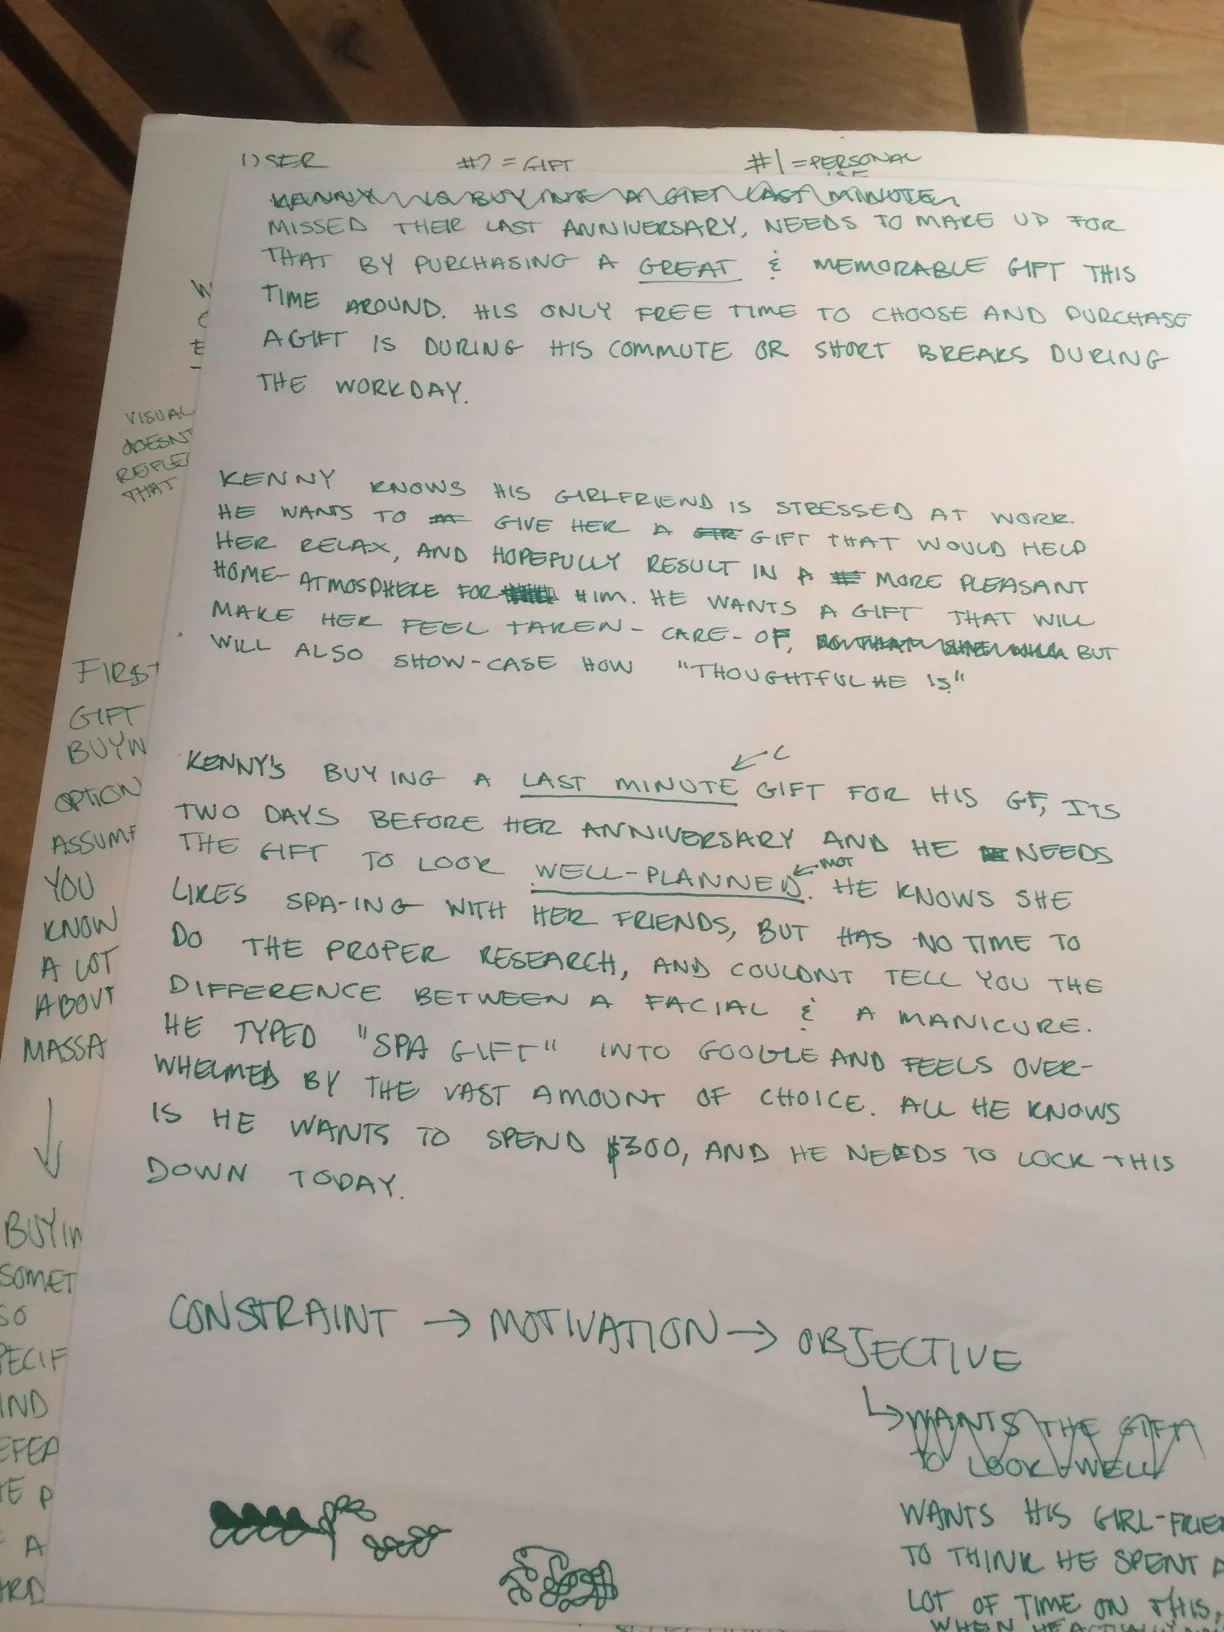 USER #2 = GIFT #1 = PERSONAL
KENNY IS BUYING A GIFT LAST MINUTE.
MISSED THEIR LAST ANNIVERSARY, NEEDS TO MAKE UP FOR
THAT BY PURCHASING A GREAT & MEMORABLE GIFT THIS
TIME AROUND. HIS ONLY FREE TIME TO CHOOSE AND PURCHASE
A GIFT IS DURING HIS COMMUTE OR SHORT BREAKS DURING
THE WORKDAY.
VISUAL
DOESNT
REFLE
THAT
KENNY KNOWS HIS GIRLFRIEND IS STRESSED AT WORK.
HE WANTS TO GIVE HER A GIFT THAT WOULD HELP
HER RELAX, AND HOPEFULLY RESULT IN A MORE PLEASANT
HOME ATMOSPHERE FOR HIM. HE WANTS A GIFT THAT WILL
MAKE HER FEEL TAKEN-CARE-OF, SO THAT SHE WILL BUT
WILL ALSO SHOW-CASE HOW "THOUGHTFUL HE IS"
FIRST
GIFT
BUYIN
OPTION
ASSUME
YOU
KNOW
A LOT
ABOUT
MASSA
KENNY'S BUYING A LAST MINUTE GIFT FOR HIS GF, ITS
TWO DAYS BEFORE HER ANNIVERSARY AND HE NEEDS
THE GIFT TO LOOK WELL-PLANNED. MOT HE KNOWS SHE
LIKES SPA-ING WITH HER FRIENDS, BUT HAS NO TIME TO
DO THE PROPER RESEARCH, AND COULDNT TELL YOU THE
DIFFERENCE BETWEEN A FACIAL & A MANICURE.
HE TYPED "SPA GIFT" INTO GOOGLE AND FEELS OVER-
WHELMED BY THE VAST AMOUNT OF CHOICE. ALL HE KNOWS
IS HE WANTS TO SPEND $300, AND HE NEEDS TO LOCK THIS
DOWN TODAY.
BUYIN
SOMET
SO
PECIF
IND
EFEA
E P
A
ARD
CONSTRAINT → MOTIVATION → OBJECTIVE
WANTS THE GIFT
TO LOOK WELL
WANTS HIS GIRL-FRIE
TO THINK HE SPENT A
LOT OF TIME ON THIS,
WHEN HE ACTUALLY